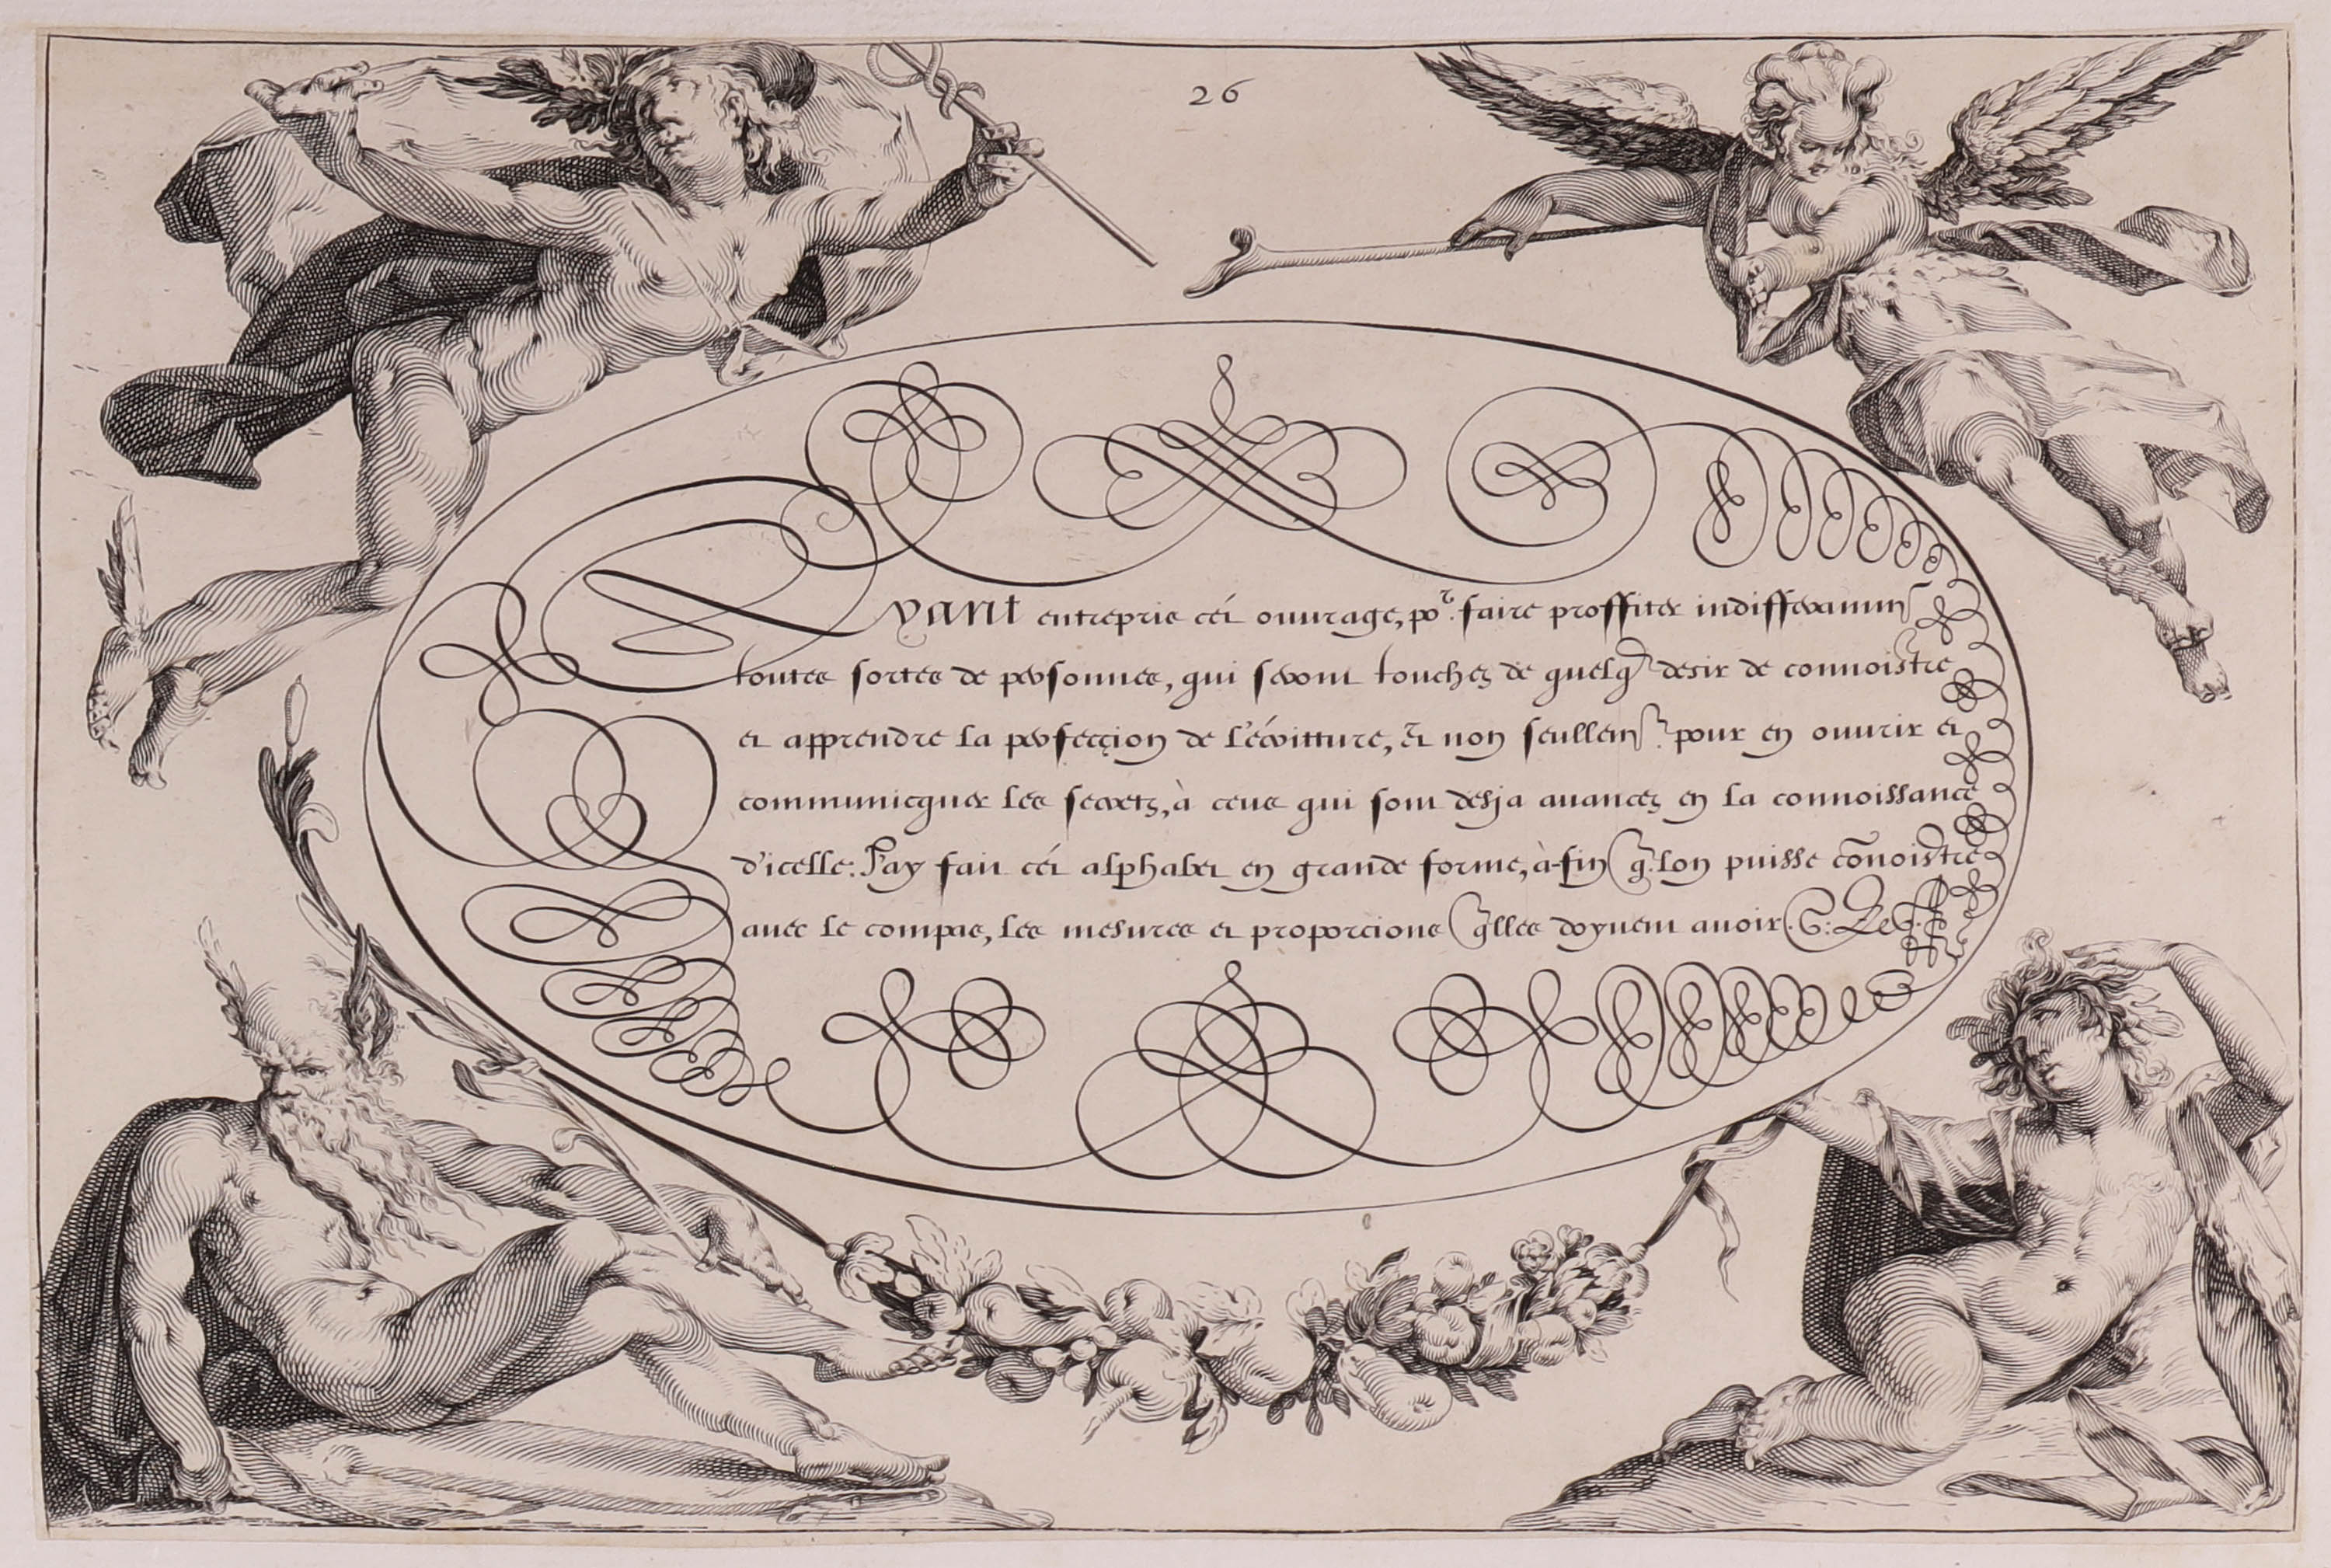 26
Ayant entrepris cét ouurage, poᵘʳ. faire proffiter indifferamm͞t
toutes sortes de personnes, qui seront touchez de quelq̃ desir de connoistre
et apprendre la perfecçion de l'écritture, & non seullem͞t. pour en ouurir et
communicquer les secretz, à ceus qui sont desja auancez en la connoissance
d'icelle: J'ay fait cét alphabet en grande forme, à-fin q̃. lon puisse cõnoistre
auec le compas, les mesures et proporcions q̃lles doyuent auoir.